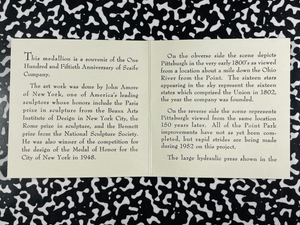 This medallion is a souvenir of the One
Hundred and Fiftieth Anniversary of Scaife
Company.
The art work was done by John Amore
of New York, one of America's leading
sculptors whose honors include the Paris
prize in sculpture from the Beaux Arts
Institute of Design in New York City, the
Rome prize in sculpture, and the Bennett
prize from the National Sculpture Society.
He was also winner of the competition for
the design of the Medal of Honor for the
City of New York in 1948.
On the obverse side the scene depicts
Pittsburgh in the very early 1800's as viewed
from a location about a mile down the Ohio
River from the Point. The sixteen stars
appearing in the sky represent the sixteen
states which comprised the Union in 1802,
the year the company was founded.
On the reverse side the scene represents
Pittsburgh viewed from the same location
150 years later. All of the Point Park
improvements have not as yet been com-
pleted, but rapid strides are being made
during 1952 on this project.
The large hydraulic press shown in the